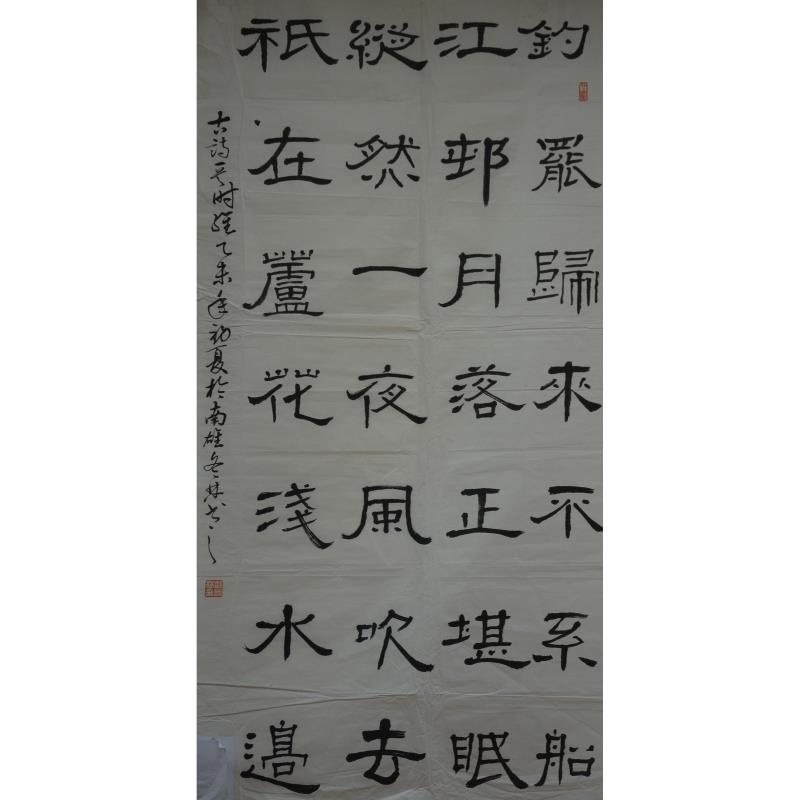 釣罷歸來不系船
江邨月落正堪眠
縱然一夜風吹去
衹在蘆花淺水邊
古詩一首時維乙未年初夏於南雄冬林书之